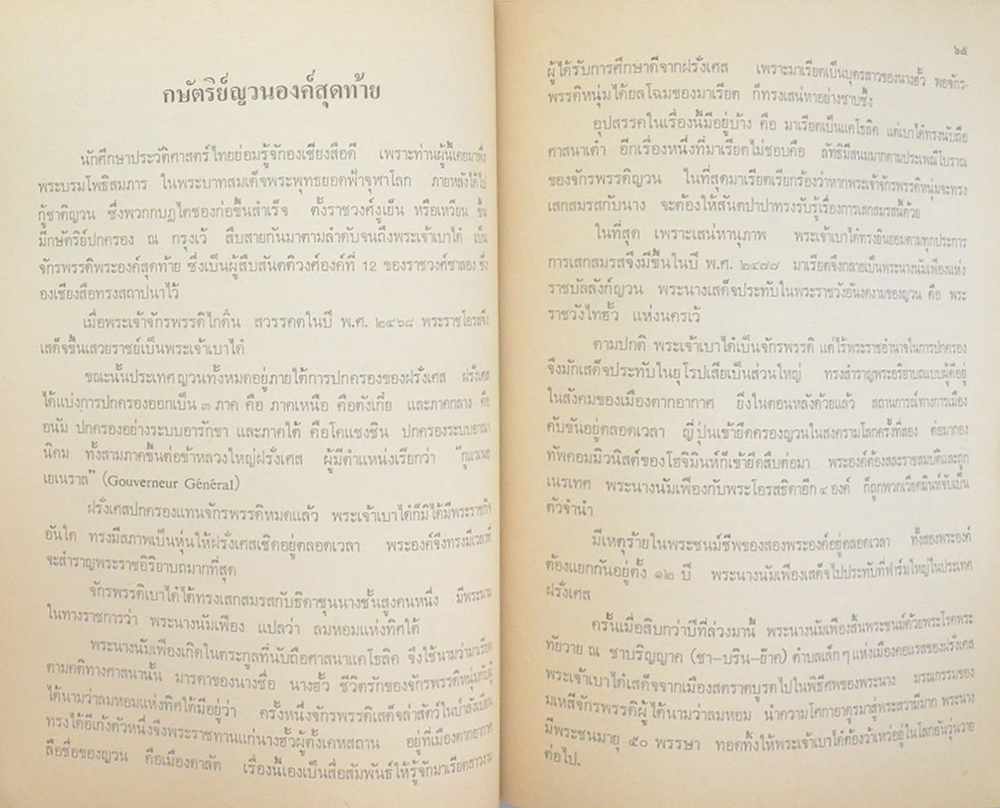 กษัตริย์ญวนองค์สุดท้าย
นักศึกษาประวัติศาสตร์ไทยย่อมรู้จักองเชียงสือดี เพราะท่านผู้นี้เคยมาพึ่ง
พระบรมโพธิสมภาร ในพระบาทสมเด็จพระพุทธยอดฟ้าจุฬาโลก ภายหลังได้ไป
กู้ชาติญวน ซึ่งพวกกบฏไตซองก่อขึ้นสำเร็จ ตั้งราชวงศ์งูเย็น หรือเหวียน ขึ้น
มีกษัตริย์ปกครอง ณ กรุงเว้ สืบสายกันมาตามลำดับจนถึงพระเจ้าเบาได๋ เป็น
จักรพรรดิพระองค์สุดท้าย ซึ่งเป็นผู้สืบสันตติวงศ์องค์ที่ 12 ของราชวงศ์ซาลอง ซึ่ง
องเชียงสือทรงสถาปนาไว้
เมื่อพระเจ้าจักรพรรดิไกดิ๋น สวรรคตในปี พ.ศ. ๒๔๖๘ พระราชโอรสจึง
เสด็จขึ้นเสวยราชย์เป็นพระเจ้าเบาได๋
ขณะนั้นประเทศญวนทั้งหมดอยู่ภายใต้การปกครองของฝรั่งเศส ฝรั่งเศส
ได้แบ่งการปกครองออกเป็น ๓ ภาค คือ ภาคเหนือ คือตังเกี๋ย และภาคกลาง คือ
อนัม ปกครองอย่างระบบอารักขา และภาคใต้ คือโคแชงชิน ปกครองระบบอาณา
นิคม ทั้งสามภาคขึ้นต่อข้าหลวงใหญ่ฝรั่งเศส ผู้มีตำแหน่งเรียกว่า “กูแวเนอ
เยเนราล” (Gouverneur Général)
ฝรั่งเศสปกครองแทนจักรพรรดิหมดแล้ว พระเจ้าเบาได๋ก็มิได้มีพระราชกิจ
อันใด ทรงมีสภาพเป็นหุ่นให้ฝรั่งเศสเชิดอยู่ตลอดเวลา พระองค์จึงทรงมีเวลาที่
จะสำราญพระราชอิริยาบถมากที่สุด
จักรพรรดิเบาได๋ได้ทรงเสกสมรสกับธิดาขุนนางชั้นสูงคนหนึ่ง มีพระนาม
ในทางราชการว่า พระนางนัมเฟือง แปลว่า ลมหอมแห่งทิศใต้
พระนางนัมเฟืองเกิดในตระกูลที่นับถือศาสนาแคโธลิค จึงใช้นามว่ามาเรียต
ตามคติทางศาสนานั้น มารดาของนางชื่อ นางฮั้ว ชีวิตรักของจักรพรรดิหนุ่มกับผู้
ได้นามว่าลมหอมแห่งทิศใต้มีอยู่ว่า ครั้งหนึ่งจักรพรรดิเสด็จล่าสัตว์ในป่าลังเบียน
ทรงได้อีเก้งตัวหนึ่งจึงพระราชทานแก่นางฮั้วผู้ตั้งเคหสถาน อยู่ที่เมืองตากอากาศ
ลือชื่อของญวน คือเมืองดาลัด เรื่องนี้เองเป็นสื่อสัมพันธ์ให้รู้จักมาเรียตสาวงาม
๖๕
ผู้ได้รับการศึกษาดีจากฝรั่งเศส เพราะมาเรียตเป็นบุตรสาวของนางฮั้ว พอจักร-
พรรดิหนุ่มได้ยลโฉมของมาเรียต ก็ทรงเสน่หาอย่างซาบซึ้ง
อุปสรรคในเรื่องนี้มีอยู่บ้าง คือ มาเรียตเป็นแคโธลิค แต่เบาได๋ทรงนับถือ
ศาสนาเต๋า อีกเรื่องหนึ่งที่มาเรียตไม่ชอบคือ ลัทธิมีสนมมากตามประเพณีโบราณ
ของจักรพรรดิญวน ในที่สุดมาเรียตเรียกร้องว่าหากพระเจ้าจักรพรรดิหนุ่มจะทรง
เสกสมรสกับนาง จะต้องให้สันตปาปาทรงรับรู้เรื่องการเสกสมรสนี้ด้วย
ในที่สุด เพราะเสน่หานุภาพ พระเจ้าเบาได๋ทรงยินยอมตามทุกประการ
การเสกสมรสจึงมีขึ้นในปี พ.ศ. ๒๔๗๗ มาเรียตจึงกลายเป็นพระนางนัมเฟืองแห่ง
ราชบัลลังก์ญวน พระนางเสด็จประทับในพระราชวังอันงดงามของญวน คือ พระ
ราชวังไทฮั้ว แห่งนครเว้
ตามปกติ พระเจ้าเบาได๋เป็นจักรพรรดิ แต่ไร้พระราชอำนาจในการปกครอง
จึงมักเสด็จประทับในยุโรปเสียเป็นส่วนใหญ่ ทรงสำราญพระอริยาบถแบบผู้ดีอยู่
ในสังคมของเมืองตากอากาศ ยิ่งในตอนหลังด้วยแล้ว สถานการณ์ทางการเมือง
คับขันอยู่ตลอดเวลา ญี่ปุ่นเข้ายึดครองญวนในสงครามโลกครั้งที่สอง ต่อมากอง
ทัพคอมมิวนิสต์ของโฮจิมินห์ก็เข้ายึดสืบต่อมา พระองค์ต้องสละราชสมบัติและถูก
เนรเทศ พระนางนัมเฟืองกับพระโอรสธิดาอีก ๔ องค์ ก็ถูกพวกเวียดมินห์จับเป็น
ตัวจำนำ
มีเหตุร้ายในพระชนม์ชีพของสองพระองค์อยู่ตลอดเวลา ทั้งสองพระองค์
ต้องแยกกันอยู่ตั้ง ๑๒ ปี พระนางนัมเฟืองเสด็จไปประทับที่ฟาร์มใหญ่ในประเทศ
ฝรั่งเศส
ครั้นเมื่อสิบกว่าปีที่ล่วงมานี้ พระนางนัมเฟืองสิ้นพระชนม์ด้วยพระโรคพระ
ทัยวาย ณ ชาบริญญาค (ชา–บริน–ย๊าค) ตำบลเล็กๆ แห่งเมืองคอแรสของฝรั่งเศส
พระเจ้าเบาได๋เสด็จจากเมืองสตราตบูรดไปในพิธีศพของพระนาง มรณกรรมของ
มเหสีจักรพรรดิผู้ได้นามว่าลมหอม นำความโศกาอาดูรมาสู่พระสวามีมาก พระนาง
มีพระชนมายุ ๕๐ พรรษา ทอดทิ้งให้พระเจ้าเบาได๋ต้องว้าเหว่อยู่ในโลกอันวุ่นวาย
ต่อไป.